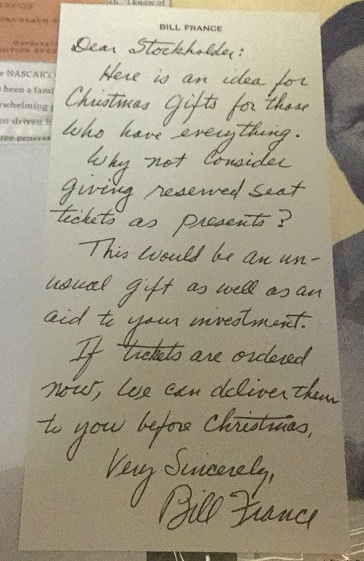 BILL FRANCE
Dear Stockholder:
Here is an idea for
Christmas Gifts for those
who have everything.
Why not consider
giving reserved seat
tickets as presents?
This would be an un-
usual gift as well as an
aid to your investment.
If tickets are ordered
now, we can deliver them
to you before Christmas.
Very Sincerely,
Bill France
e NASCAR's
been a fami
whelming
n driven b